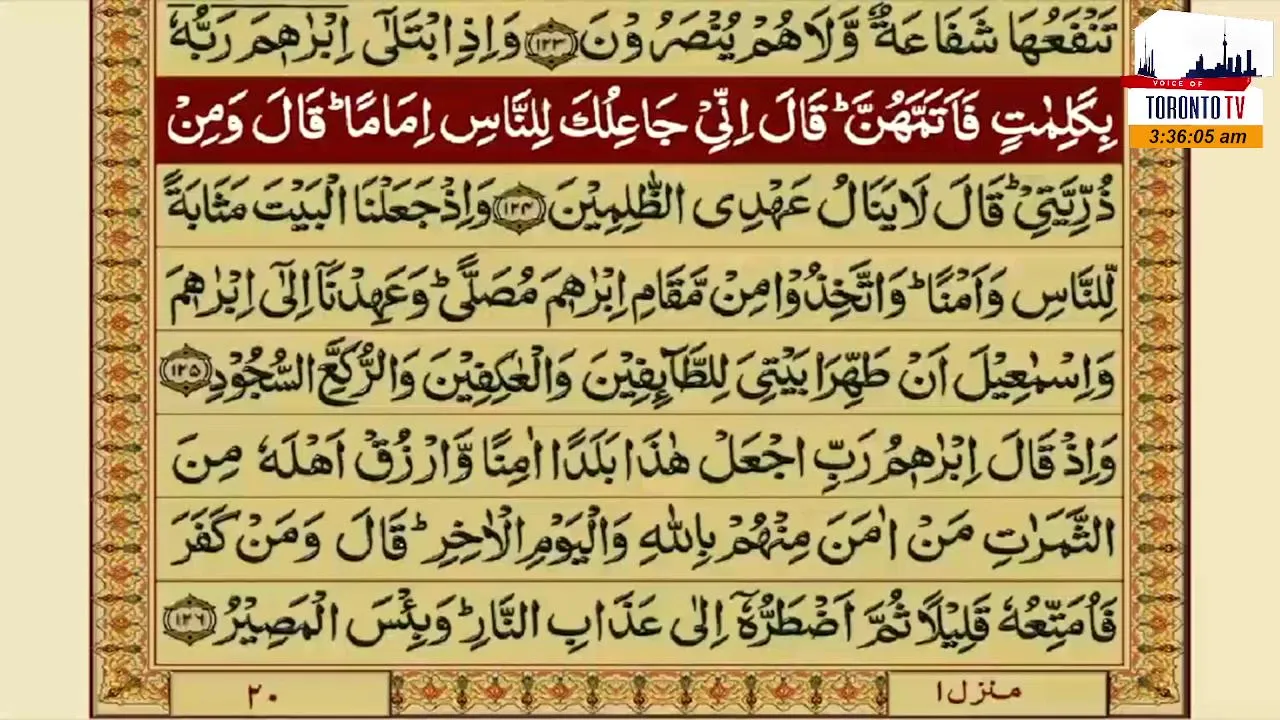 تَنْفَعُهَا شَفَاعَةٌ وَّلَا هُمْ يُنْصَرُوْنَ ﴿۱۲۳﴾ وَاِذِ ابْتَلٰٓى اِبْرٰهٖمَ رَبُّهٗ
بِكَلِمٰتٍ فَاَتَمَّهُنَّ ؕ قَالَ اِنِّيْ جَاعِلُكَ لِلنَّاسِ اِمَامًا ؕ قَالَ وَمِنْ
ذُرِّيَّتِيْ ؕ قَالَ لَا يَنَالُ عَهْدِى الظّٰلِمِيْنَ ﴿۱۲۴﴾ وَاِذْ جَعَلْنَا الْبَيْتَ مَثَابَةً
لِّلنَّاسِ وَاَمْنًا ؕ وَاتَّخِذُوْا مِنْ مَّقَامِ اِبْرٰهٖمَ مُصَلًّى ؕ وَعَهِدْنَآ اِلٰٓى اِبْرٰهٖمَ
وَاِسْمٰعِيْلَ اَنْ طَهِّرَا بَيْتِىَ لِلطَّآئِفِيْنَ وَالْعٰكِفِيْنَ وَالرُّكَّعِ السُّجُوْدِ ﴿۱۲۵﴾
وَاِذْ قَالَ اِبْرٰهٖمُ رَبِّ اجْعَلْ هٰذَا بَلَدًا اٰمِنًا وَّارْزُقْ اَهْلَهٗ مِنَ
الثَّمَرٰتِ مَنْ اٰمَنَ مِنْهُمْ بِاللّٰهِ وَالْيَوْمِ الْاٰخِرِ ؕ قَالَ وَمَنْ كَفَرَ
فَاُمَتِّعُهٗ قَلِيْلًا ثُمَّ اَضْطَرُّهٗٓ اِلٰى عَذَابِ النَّارِ ؕ وَبِئْسَ الْمَصِيْرُ ﴿۱۲۶﴾
منزل ۱
۲۰
VOICE OF
TORONTO TV
3:36:05 am